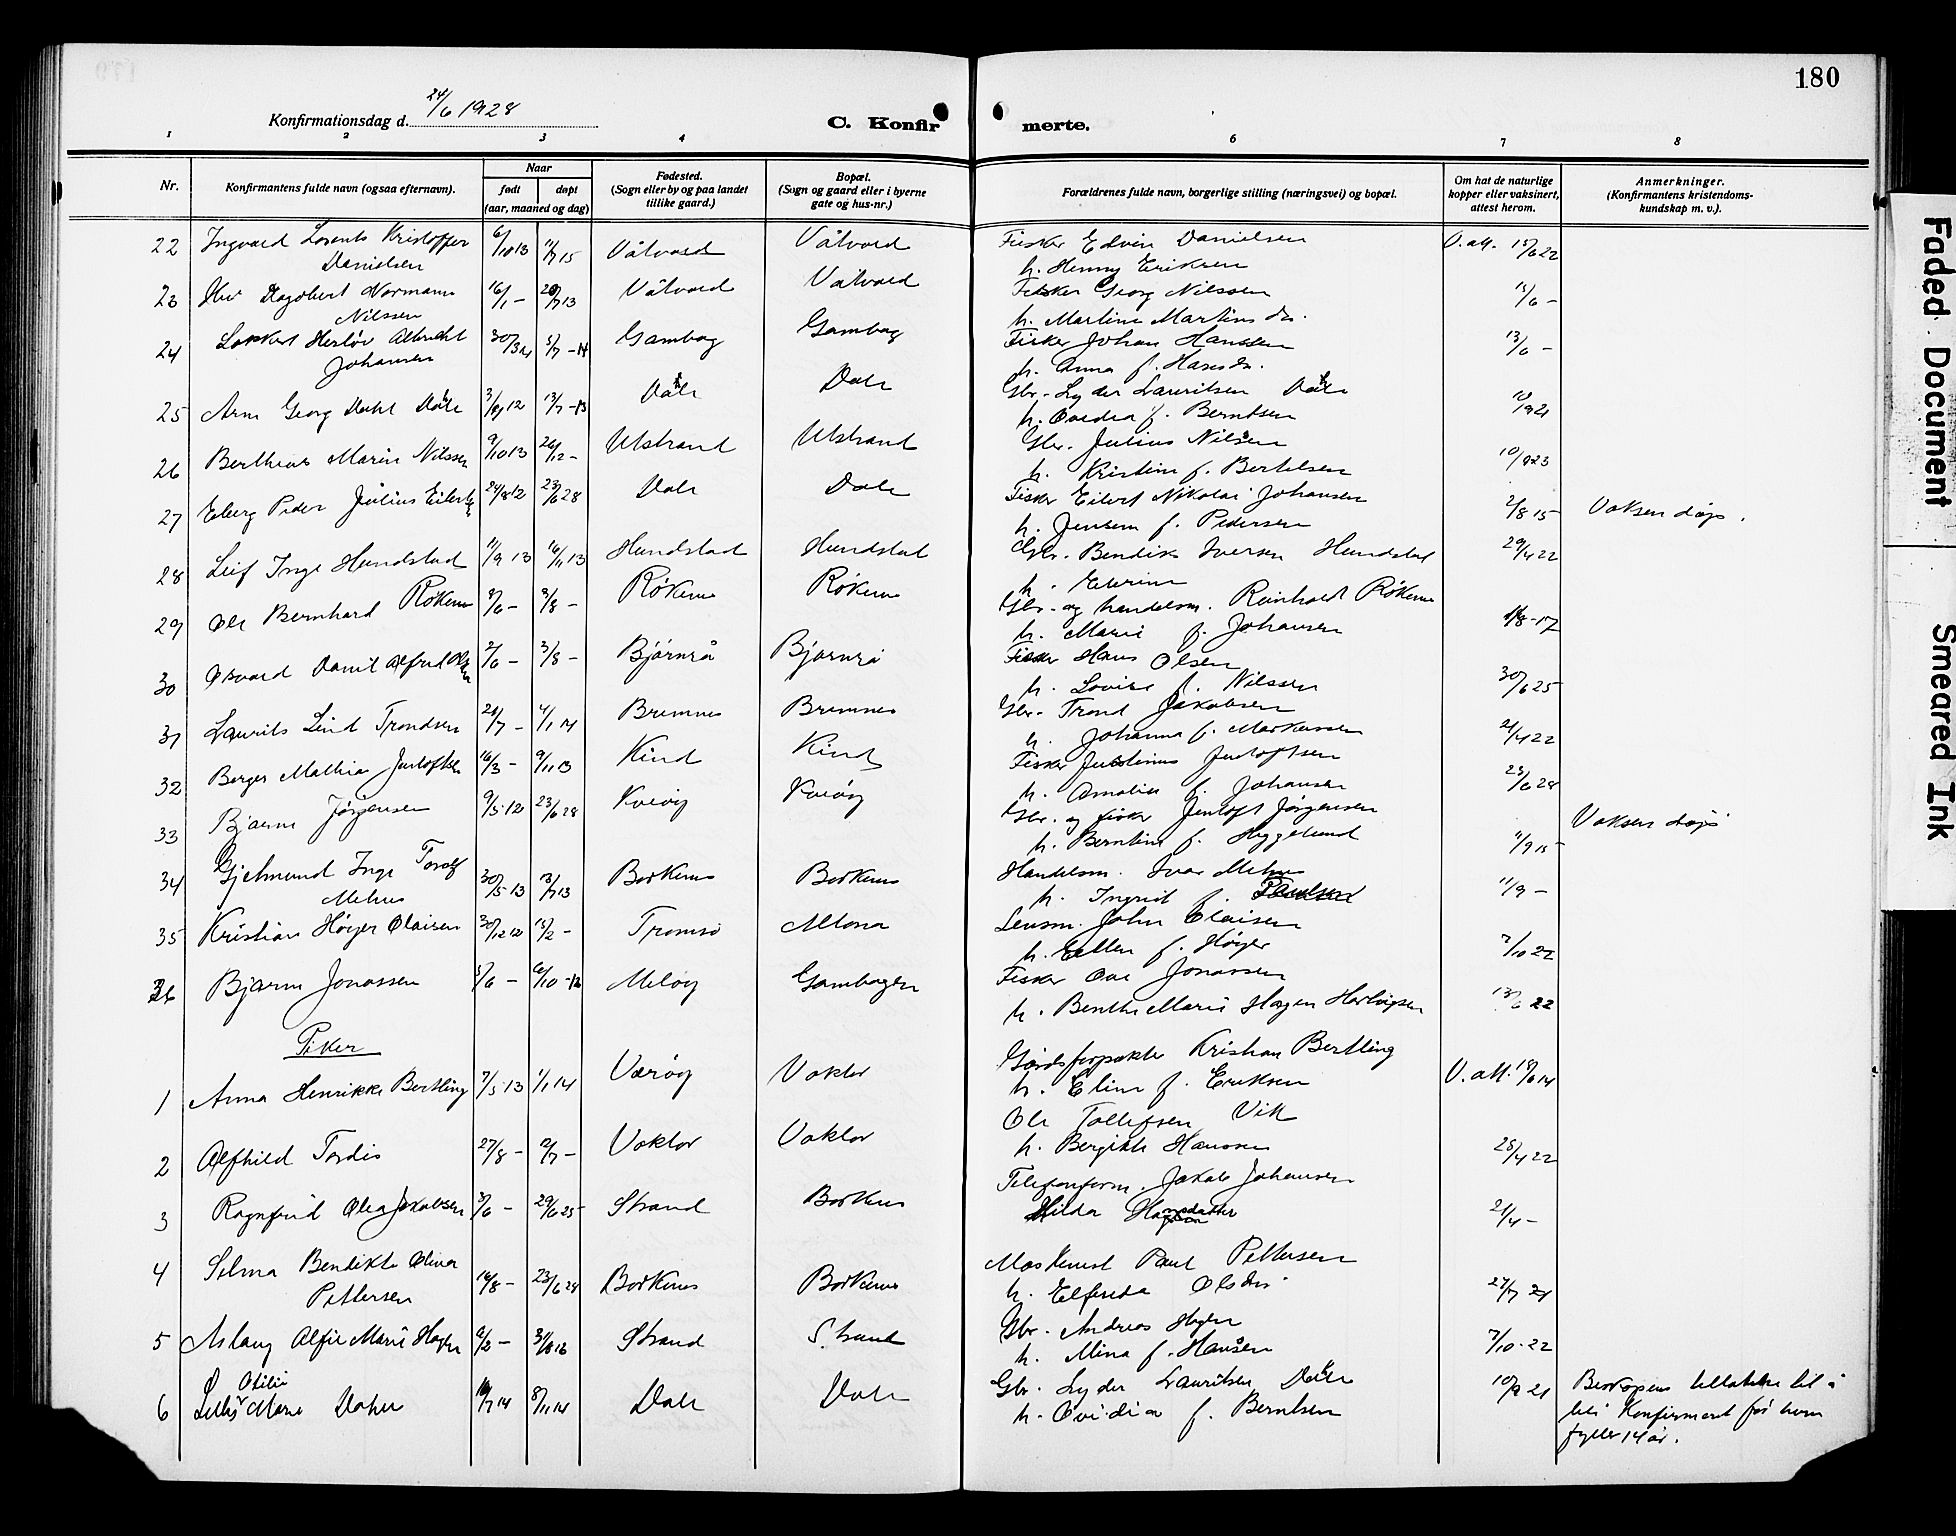 180
Konfirmationsdag d. 24/6 1928
C. Konfirmerte.
1 2 3 4 6 7 8
Nr.
Konfirmantens fulde navn (ogsaa efternavn).
Naar
født døpt
(aar, maaned og dag)
Fødested.
(Sogn eller by og paa landet
tillike gaard.)
Bopæl.
(Sogn og gaard eller i byerne
gate og hus-nr.)
Forældrenes fulde navn, borgerlige stilling (næringsvei) og bopæl.
Om hat de naturlige
kopper eller vaksinert,
attest herom.
Anmerkninger.
(Konfirmantens kristendoms-
kundskap m. v.).
22 Ingvard Lorents Kristoffer 6/10 13 11/7 15 Våtvold Våtvold Fisker Edvin Danielsen V. att. 15/6 22
Danielsen h. Henny Eriksen
23 Dagobert Normann 16/1 - 20/7 13 Våtvold Våtvold Fisker Georg Nilssen 15/6 -
Nilssen h. Martine Martinsdr.
24 Herlöv Albrecht 5/7 - 14 Gambog Gambog Fisker Johan Hanssen 13/6 -
Johansen h. Anna f. Hansdr.
25 Arne Georg Dahl 13/7 - 13 Dale Gbr. Lyder Lauritsen 10/9 21
h. Ovedia f. Berntsen
26 Marie Nilssen 9/10 13 26/12 - Ulstrand Ulstrand Gbr. Julius Nilsen 10/9 23
h. Kristine f. Bertelsen
27 Eberg Peder Julius 24/8 12 23/6 28 Dale Dale Fisker Eilert Nikolai Johansen 2/8 15 Voksen døpt.
h. Jensine f. Pedersen
28 Leif Inge Hundstad 11/9 13 16/11 13 Hundstad Hundstad Gbr. Bendik Iversen Hundstad 29/4 22
h. Eterine
29 Ole Bernhard Røkenes 8/6 - 3/8 - Røkenes Røkenes Gbr. og handelsm. Reinholdt Røkenes
h. Marie f. Johansen
30 Osvard Daniel Alfred Olsen 2/6 - 3/8 - Bjørnrå Bjørnrå Fisker Hans Olsen 30/6 25
h. Lovise f. Nilssen
31 Laurits Lind Trondsen 21/7 - 4/1 14 Bremnes Bremnes Gbr. Trond Jakobsen 21/4 22
h. Johanna f. Markussen
32 Berger Mathias Jentoftsen 16/3 - 9/11 13 Kind Kind Fisker Justinius Jentoftsen 23/6 28
h. Amalie f. Johansen
33 Bjarne Jørgensen 9/5 12 23/6 28 Kveøy Kveøy Gbr. og fisker Jentoft Jørgensen 11/9 15 Voksen døpt
h. Berntine f. Heggelund
34 Gjetmund Inge Torolf 30/5 13 3/7 13 Borkenes Borkenes Handelsm. Ivar Mehus 11/9 -
Mehus h. Ingrid f. Paulsen
35 Kristian Høyer Olaisen 30/12 12 15/2 - Tromsø Altona Lensm. John Olaisen 7/10 22
h. Ellen f. Høyer
36 Bjarne Jonassen 5/6 - Meløy Gambogen Fisker Ove Jonassen 13/6 22
h. Benthe Marie Hagen Hartvigsen
Piker
1 Anna Henrikke Bertling 7/5 13 1/1 14 Værøy Voktor Gårdsforpakter Kristian Bertling V. att. 19/6 14
h. Eline f. Eriksen
2 Alfhild Tordis 27/8 - 2/7 - Voktor Voktor Ole Tollefsen Vik 28/4 22
h. Bergitte Hanssen
3 Ragnfrid Olea Jakobsen 3/6 - 29/6 25 Strand Borkenes Telefonform. Jakob Johansen 21/4 -
Hilda
4 Selma Bendikte Oliva 16/8 - 23/6 28 Borkenes Borkenes Maskinist Paul Pettersen 27/7 21
Pettersen h. Elfrida Olsdr.
5 Aslaug Alfie Marie Hagen 6/2 - Strand Strand Gbr. Andreas Hagen 7/10 - 22
h. Mina f. Hansen
6 Otilie Marie 8/11 14 Dale Dale Gbr. Lyder Lauritsen 10/9 21 Biskopens tillatelse til å
h. Ovidia f. Berntsen bli konfirmert før hun
fyller 14 år.
Faded Document
Smeared Ink